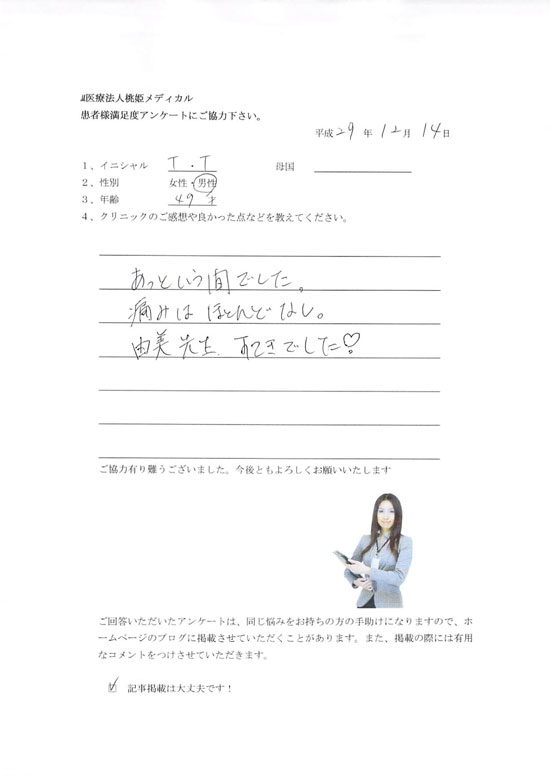 医療法人桃姫メディカル
患者様満足度アンケートにご協力下さい。
平成29年12月14日
1、イニシャル T.T 母国
2、性別 女性・男性
3、年齢 49才
4、クリニックのご感想や良かった点などを教えてください。
あっという間でした。
痛みはほとんどなし。
由美先生、すてきでした♡
ご協力有り難うございました。今後ともよろしくお願いいたします
ご回答いただいたアンケートは、同じ悩みをお持ちの方の手助けになりますので、ホ
ームページのブログに掲載させていただくことがあります。また、掲載の際には有用
なコメントをつけさせていただきます。
☑ 記事掲載は大丈夫です！